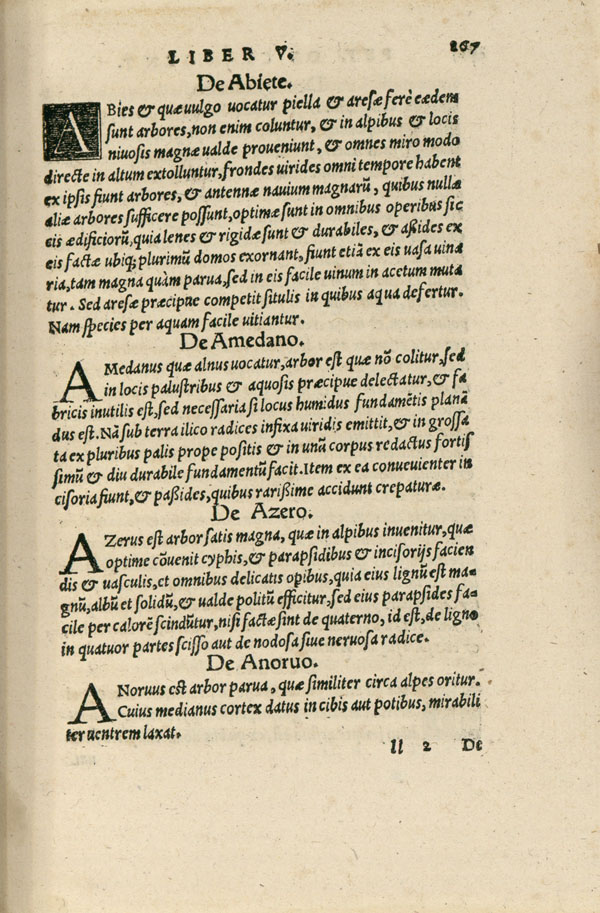 LIBER V. 267
De Abiete.
ABies & quæ uulgo uocatur piella & aresæ ferè eædem
sunt arbores, non enim coluntur, & in alpibus & locis
niuosis magnæ ualde proueniunt, & omnes miro modo
directe in altum extolluntur, frondes uirides omni tempore habent
ex ipsis fiunt arbores, & antennæ nauium magnarũ, quibus nullæ
aliæ arbores sufficere possunt, optimæ sunt in omnibus operibus sic
cis ædificiorũ, quia lenes & rigidæ sunt & durabiles, & aßides ex
eis factæ ubiq; plurimũ domos exornant, fiunt etiã ex eis uasa uina
ria, tam magna quàm parua, sed in eis facile uinum in acetum muta
tur. Sed aresæ præcipue competit situlis in quibus aqua defertur.
Nam species per aquam facile uitiantur.
De Amedano.
AMedanus quæ alnus uocatur, arbor est quæ nõ colitur, sed
in locis palustribus & aquosis præcipue delectatur, & fa
bricis inutilis est, sed necessaria si locus humidus fundamẽtis planã
dus est. Nã sub terra ilico radices infixa uiridis emittit, & in grossa
ta ex pluribus palis prope positis & in unũ corpus redactus fortis
simũ & diu durabile fundamentũ facit. Item ex ea conueuienter in
cisoria fiunt, & paßides, quibus rarißime accidunt crepaturæ.
De Azero.
AZerus est arbor satis magna, quæ in alpibus inuenitur, quæ
optime cõuenit cyphis, & parapsidibus & incisorijs facien
dis & uasculis, et omnibus delicatis opibus, quia eius lignũ est ma
gnũ, albũ et solidũ, & ualde politũ efficitur, sed eius parapsides fa
cile per calorẽ scindũtur, nisi factæ sint de quaterno, id est, de ligno
in quatuor partes scisso aut de nodosa siue neruosa radice.
De Anoruo.
ANoruus est arbor parua, quæ similiter circa alpes oritur.
Cuius medianus cortex datus in cibis aut potibus, mirabili
ter uentrem laxat.
ll 2 De